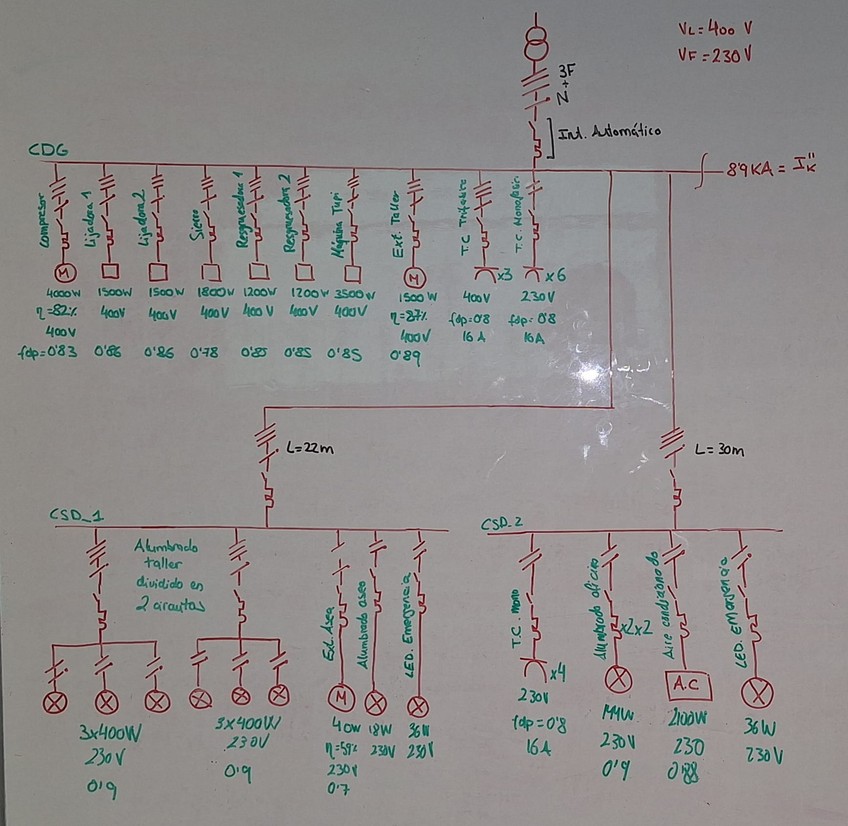 VL=400 V
VF=230V
3F
+
N
Int. Automático
CDG
89KA = I"K
Compresor
Lijadora 1
Lijadora 2
Sierra
Regruesadora 1
Regruesadora 2
Máquina Tupi
Ext. Taller
T.C. Trifásico
T.C. Monofásic
x3
x6
4000W 1500W 1500W 1800W 1200W 1200W 3500W 1500W 400V 230V
η=82% 400V 400V 400V 400V 400V 400V η=87% fdp=0'8 fdp=0'8
400V 400V 16A 16A
fdp=0'83 0'86 0'86 0'78 0'85 0'85 0'85 0'89
L=22m
L=30m
CSD_1
CSD_2
Alumbrado
taller
dividido en
2 circuitos
Ext. Aseo
Alumbrado aseo
LED. Emergencia
T.C. mono
Alumbrado oficina
Aire condicionado
LED. Emergencia
x2x2
x4
A.C
3x400W
230V
0'9
3x400W
230V
0'9
40W
η=59%
230V
0'7
18W
230V
36W
230V
230V
fdp=0'8
16A
144W
230V
0'9
2100W
230
0'88
36W
230V